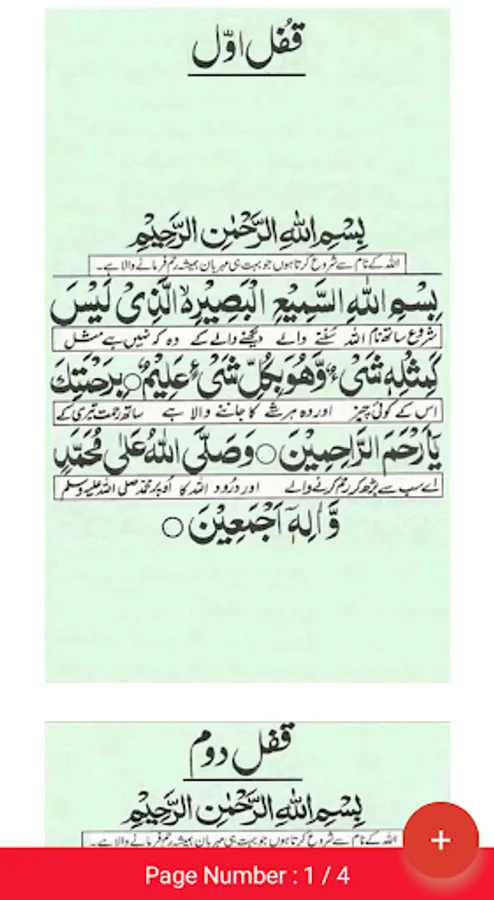 قفل اوّل
بِسْمِ اللهِ الرَّحْمٰنِ الرَّحِيْمِ
اللہ کے نام سے شروع کرتا ہوں جو بہت ہی مہربان ہمیشہ رحم فرمانے والا ہے۔
بِسْمِ اللهِ السَّمِيْعِ الْبَصِيْرِ الَّذِىْ لَيْسَ
شروع ساتھ نام اللہ سُننے والے دیکھنے والے کے وہ کہ نہیں ہے مثل
كَمِثْلِهٖ شَىْءٌ وَّهُوَ بِكُلِّ شَىْءٍ عَلِيْمٌ ○ بِرَحْمَتِكَ
اس کے کوئی چیز اور وہ ہر شے کا جاننے والا ہے ساتھ رحمت تیری کے
يَا اَرْحَمَ الرَّاحِمِيْنَ ○ وَصَلَّى اللهُ عَلٰى مُحَمَّدٍ
اے سب سے بڑھ کر رحم کرنے والے اور درُود اللہ کا اُوپر محمد صلی اللہ علیہ وسلم
وَّاٰلِهٖ اَجْمَعِيْنَ ○
قفل دوم
بِسْمِ اللهِ الرَّحْمٰنِ الرَّحِيْمِ
اللہ کے نام سے شروع کرتا ہوں جو بہت ہی مہربان ہمیشہ رحم فرمانے والا ہے۔
+
Page Number : 1 / 4